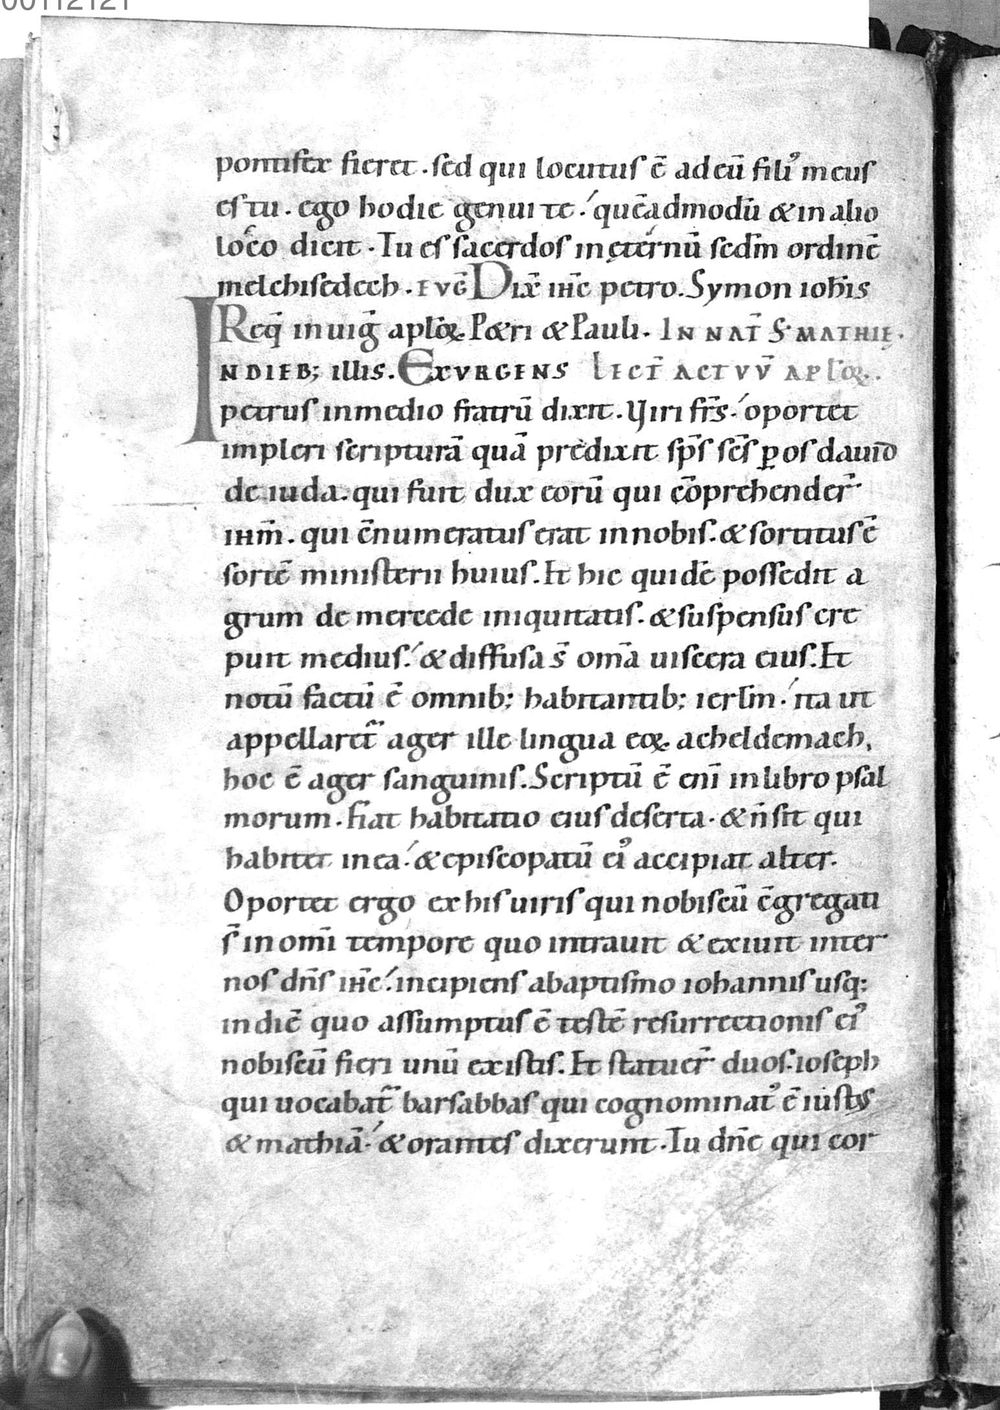 00112121
pontifex fieret . sed qui locutus ē ad eū fili᾽ meus
es tu . ego hodie genui te . quēadmodū & in alio
loco dicit . Tu es sacerdos in ęternū sedm̄ ordinē
melchisedech . EVḠ Dix̄ ih̄c petro . Symon ioh̄is
Req̄ in uiḡ aplo̅ꝝ Petri & Pauli . IN NAT̄ S . MATHIĘ .
INDIEB; illis . EXVRGENS LECT̄ ACTVV̄ APLO̅ꝝ .
petrus in medio fratrū dixit . Viri fr̄s oportet
impleri scripturā quā predixit sp̄s sc̄s ꝑ os dauid
de iuda . qui fuit dux eorū qui cōprehender̄
ihm̄ . qui c̄numeratus erat in nobis . & sortitus ē
sortē ministerii huius . Et hic quidē possedit a
grum de mercede iniquitatis . & suspensus cre
puit medius . & diffusa s̄ om̄a uiscera eius . Et
notū factū ē omnib; habitantib; ierlm̄ . ita ut
appellaret̄ ager ille lingua eoꝝ acheldemach,
hoc ē ager sanguinis . Scriptū ē eni̅ in libro psal
morum . Fiat habitatio eius deserta . & n̄ sit qui
habitet in ea . & episcopatū ei᾽ accipiat alter .
Oportet ergo ex his uiris qui nobiscū c̄gregati
s̄ in omi̅ tempore quo intrauit & exiuit inter
nos dn̄s ih̄c . incipiens abaptismo iohannis usq;
in diē quo assumptus ē testē resurrectionis ei᾽
nobiscū fieri unū ex istis . Et statuer̄ duos . ioseph
qui uocabat̄ barsabbas qui cognominat᾽ ē iustus
& mathiā . & orantes dixerunt . Tu dn̄e qui cor